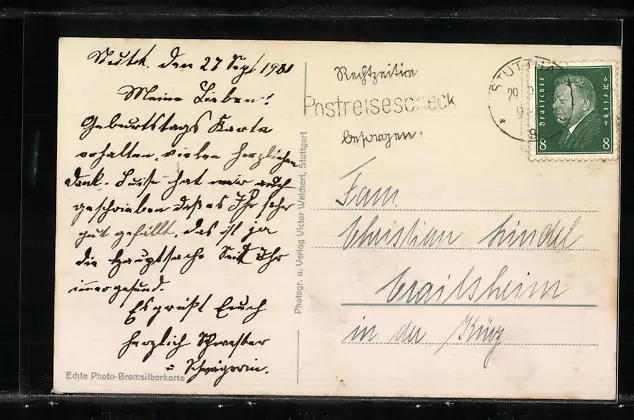 Stuttg. den 27 Sept 1931
Meine Lieben!
Geburtstags Karte
erhalten, vielen herzlichen
Dank. Luise hat mir auch
geschrieben daß es Ihr sehr
gut gefällt, das ist ja
die Hauptsache. Seit Ihr
immer gesund.
Es grüßt Euch
herzlich Schwester
= Schwägerin.
Echte Photo-Bromsilberkarte
Photogr. u. Verlag Victor Weichert, Stuttgart
Rechtzeitig
Postreisescheck
besorgen!
STUTTGART
29
Deutsches Reich
8 8
Fam.
Christian Hindel
Crailsheim
in der Kürz